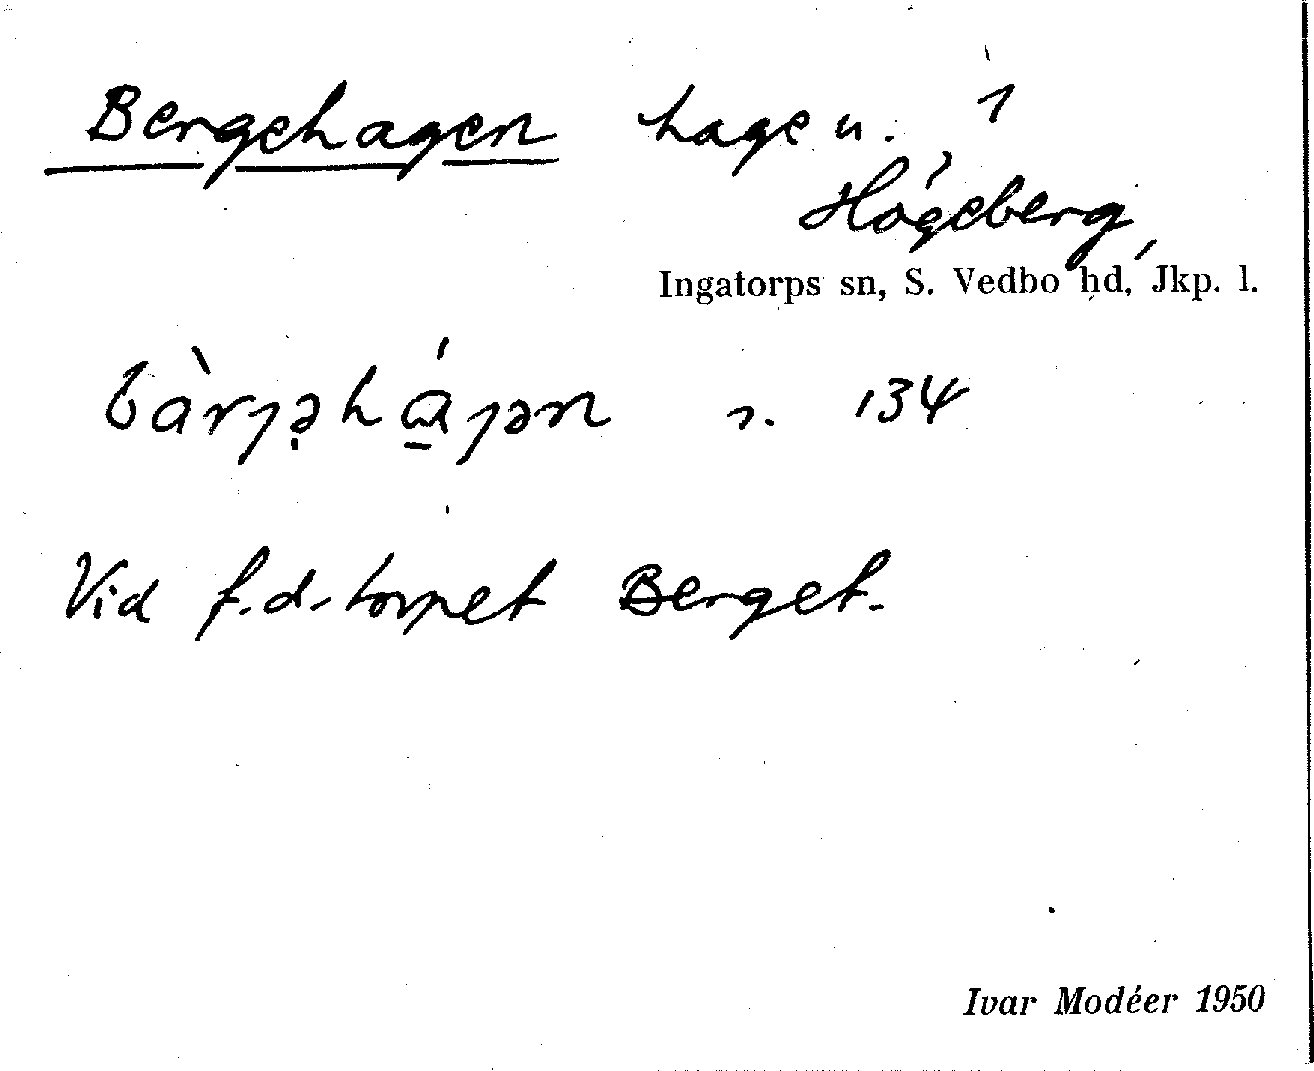 Bergehagen hage u. 1
Högeberg,
Ingatorps sn, S. Vedbo hd, Jkp. l.
134
Vid f.d. torpet Berget.
Ivar Modéer 1950